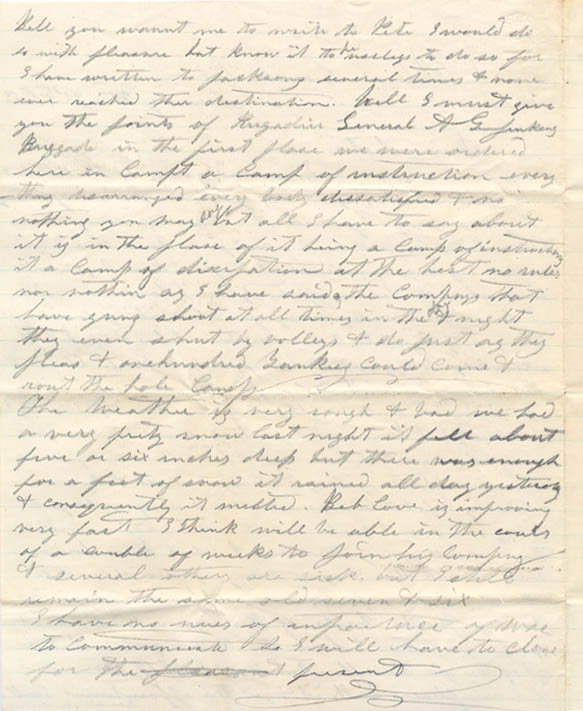 Bell you wannt me to write to Pete I would do
so with pleasure but know it to be uselegs to do so for
I have written to Jacksons several times & none
ever reached ther destination. Well I must give
you the points of Brigadier General A G Jenkens
Briggade in the first plase we were ordered
here in Campt a Camp of instruction every
thing disarranged every body dissatisfied & no
nothing you may say but all I have to say about
it is in the plase of it being a Camp of instruction
it a Camp of discipation at the best no rules
nor nothin as I have said the Companys that
have guns shoot at all times in the day & night
they even shoot by volleys & do just as they
pleas & onehundred Yankies could come &
rout the hole Camp
The Weather is very rough & bad we had
a very prity snow last night it fell about
five or six inches deep but there was enough
for a foot of snow it rained all day yesterday
& consequently it melted. Bob Love is improving
very fast I think will be able in the cours
of a couble of weeks to join his Company
& several others are sick. but I still
remain the same old seven & six
I have no news of importance
to Communicate So I will have to close
for the pleasant present